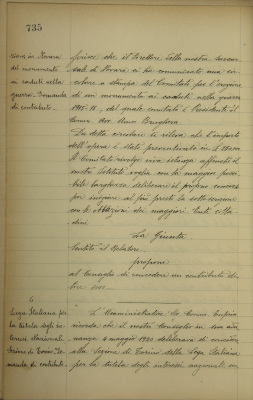 735
zione in Novara
del monumento
ai caduti nella
guerra. Domanda
di contributo.
scrisse che il Direttore della nostra succur-
sale di Novara ci ha comunicato una cir-
colare a stampa del Comitato per l'erezione
di un monumento ai caduti nella guerra
1915-18, del quale comitato è Presidente il
Dalla circolare si rileva che l'importo
dell'opera è stato preventivato in L.
Il Comitato rivolge viva istanza affinchè il
nostro Istituto voglia con la maggior possi-
bile larghezza deliberare il proprio concorso
per iniziare al più presto la sottoscrizione
con le oblazioni dei maggiori Enti citta-
dini
La Giunta
sentito il relatore,
propone
al Consiglio di concedere un contributo di
lire
6
Lega Italiana per
la tutela degli in-
teressi Nazionali.
Sezione di Torino. Do-
manda di contributo.
L'Amministratore
ricorda che il nostro Consiglio in sua adu-
nanza 4 maggio 1920 deliberava di
alla sezione di Torino della Lega Italiana
per la tutela degli interessi nazionali un